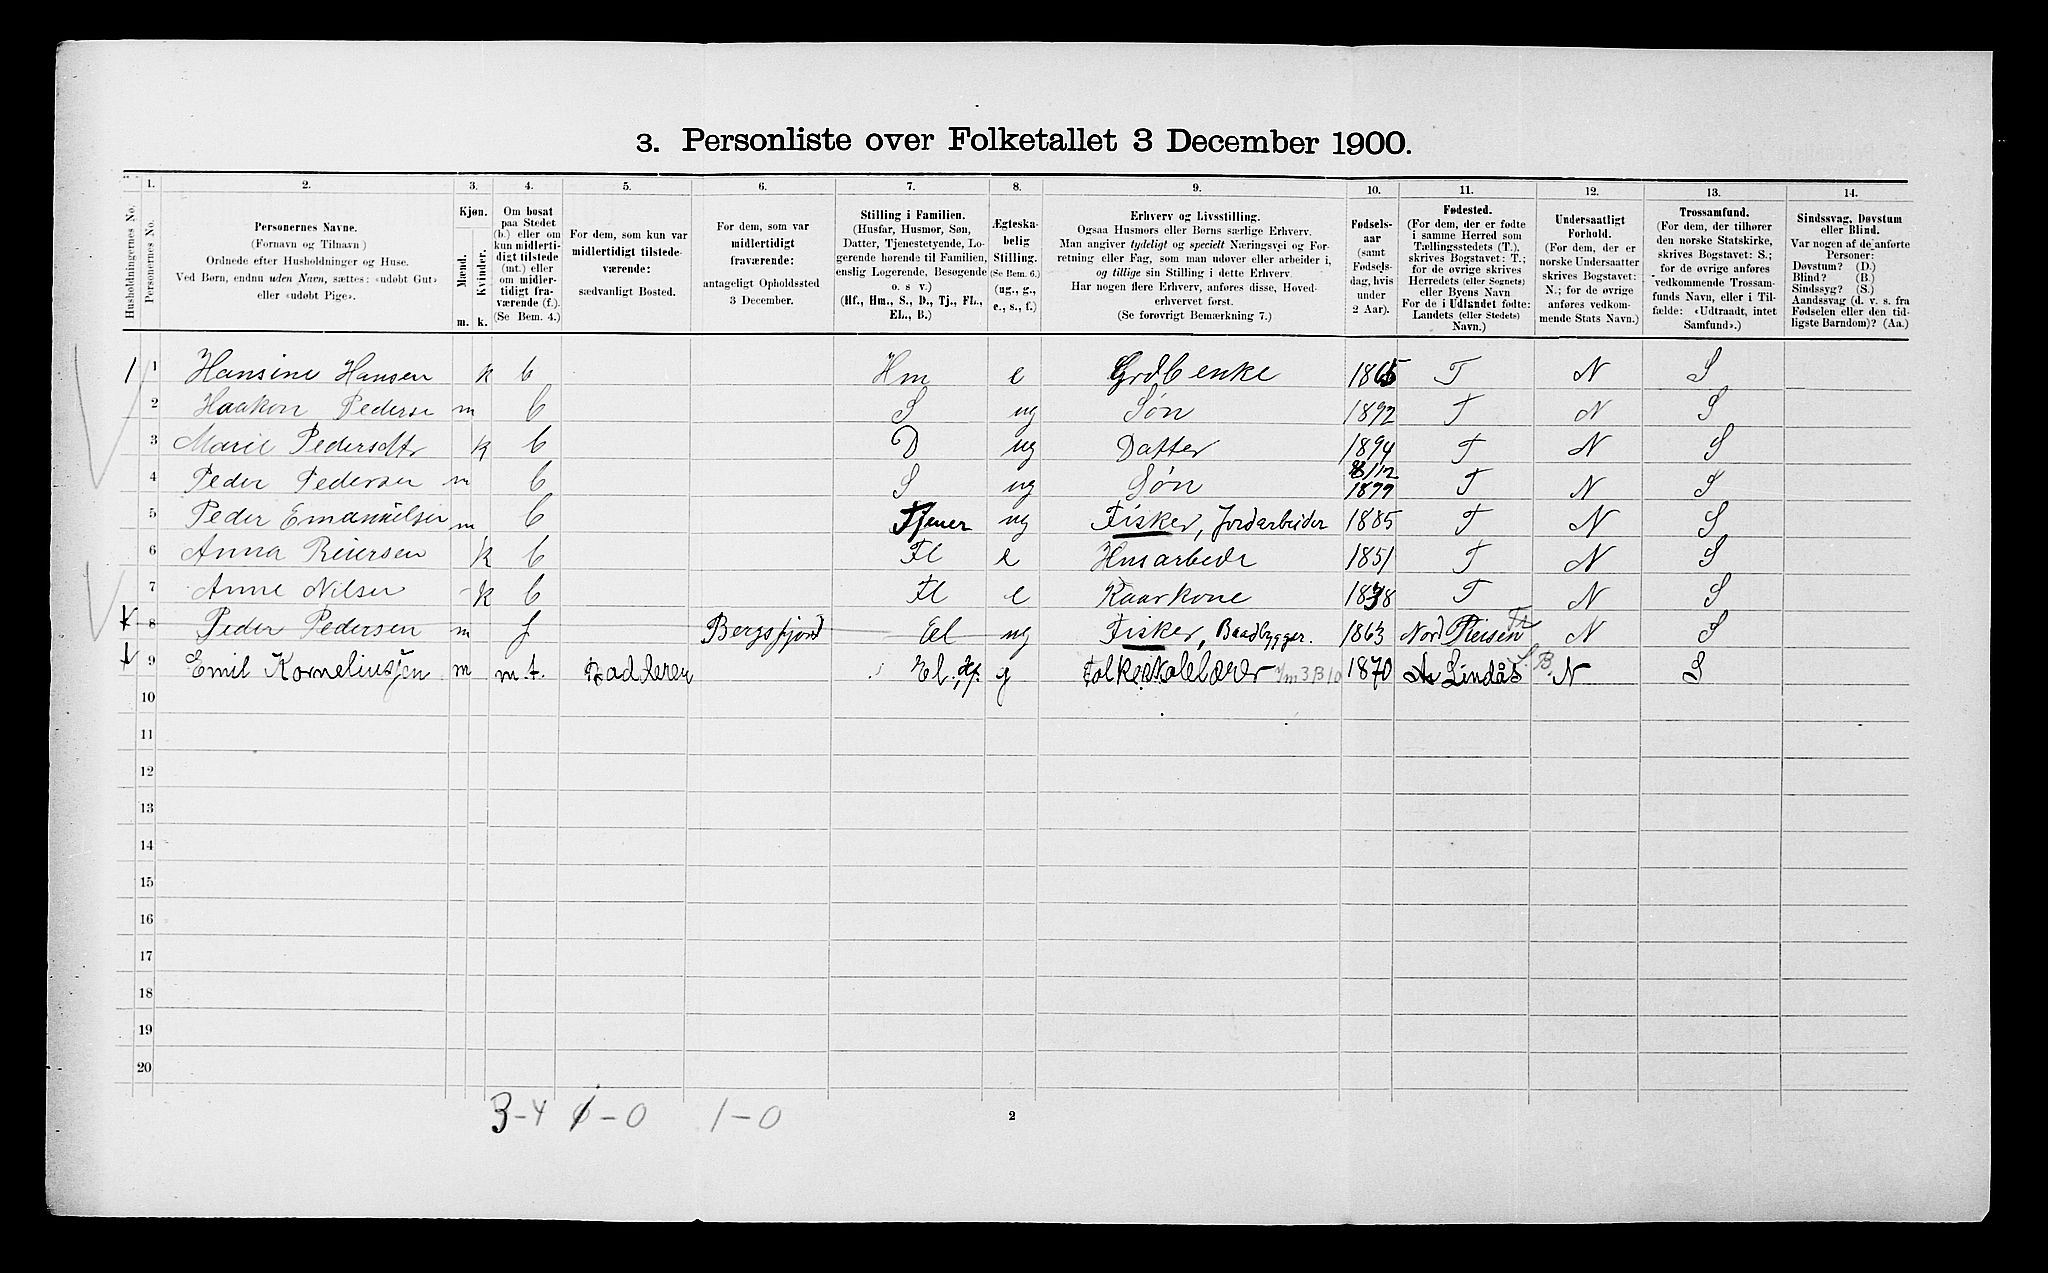 3. Personliste over Folketallet 3 December 1900.
Husholdningernes No.
1.
Personernes No.
2.
Personernes Navne.
(Fornavn og Tilnavn)
Ordnede efter Husholdninger og Huse.
Ved Børn, endnu uden Navn, sættes: «udøbt Gut»
eller «udøbt Pige».
3.
Kjøn.
Mænd.
Kvinder.
m. k.
4.
Om bosat
paa Stedet
(b.) eller om
kun midlerti-
digt tilstede
(mt.) eller
om midler-
tidigt fra-
værende (f.).
(Se Bem. 4.)
5.
For dem, som kun var
midlertidigt tilstede-
værende:
sædvanligt Bosted.
6.
For dem, som var
midlertidigt
fraværende:
antageligt Opholdssted
3 December.
7.
Stilling i Familien.
(Husfar, Husmor, Søn,
Datter, Tjenestetyende, Lo-
gerende hørende til Familien,
enslig Logerende, Besøgende
o. s v.)
(Hf., Hm., S., D., Tj., FL.,
EL., B.)
8.
Ægteska-
belig
Stilling.
(Se Bem. 6.)
(ug., g.,
e., s., f.)
9.
Erhverv og Livsstilling.
Ogsaa Husmors eller Børns særlige Erhverv.
Man angiver tydeligt og specielt Næringsvei og For-
retning eller Fag, som man udøver eller arbeider i,
og tillige sin Stilling i dette Erhverv.
Har nogen flere Erhverv, anføres disse, Hoved-
erhvervet først.
(Se forøvrigt Bemærkning 7.)
10.
Fødsels-
aar
(samt
Fødsels-
dag, hvis
under
2 Aar).
11.
Fødested.
(For dem, der er fødte
i samme Herred som
Tællingsstedets (T.),
skrives Bogstavet: T.;
for de øvrige skrives
Herredets (eller Sognets)
eller Byens Navn
For de i Udlandet fødte:
Landets (eller Stedets)
Navn.)
12.
Undersaatligt
Forhold.
(For dem, der er
norske Undersaatter
skrives Bogstavet:
N.; for de øvrige
anføres vedkom-
mende Stats Navn.)
13.
Trossamfund.
(For dem, der tilhører
den norske Statskirke,
skrives Bogstavet: S.;
for de øvrige anføres
vedkommende Trossam-
funds Navn, eller i Til-
fælde: «Udtraadt, intet
Samfund».)
14.
Sindssvag, Døvstum
eller Blind.
Var nogen af de anførte
Personer:
Døvstum? (D.)
Blind? (B.)
Sindssyg? (S.)
Aandssvag (d. v. s. fra
Fødselen eller den tid-
ligste Barndom)? (Aa.)
1 1 Hansine Hansen k b Hm e Grdb enke 1865 T N S
2 Haakon Pederse m b S ug Søn 1892 T N S
3 Marie Pedersdtr k b D ug Datter 1894 T N S
4 Peder Pedersen m b S ug Søn 8/12 1899 T N S
5 Peder Emanuelsen m b Tjener ug Fisker, Jordarbeider 1885 T N S
6 Anna Reiersen k b Fl e Husarbede 1851 T N S
7 Anne Nilsen k b Fl e Kaarkone 1838 T N S
8 Peder Pedersen m f Bergsfjord El ug Fisker, Baadbygger. 1863 Nord N S
9 Emil Korneliussen m m.t. El. g Folkeskolelærer 1870 Lindås S.B. N S
10
11
12
13
14
15
16
17
18
19
20
3-4 1-0 1-0
2